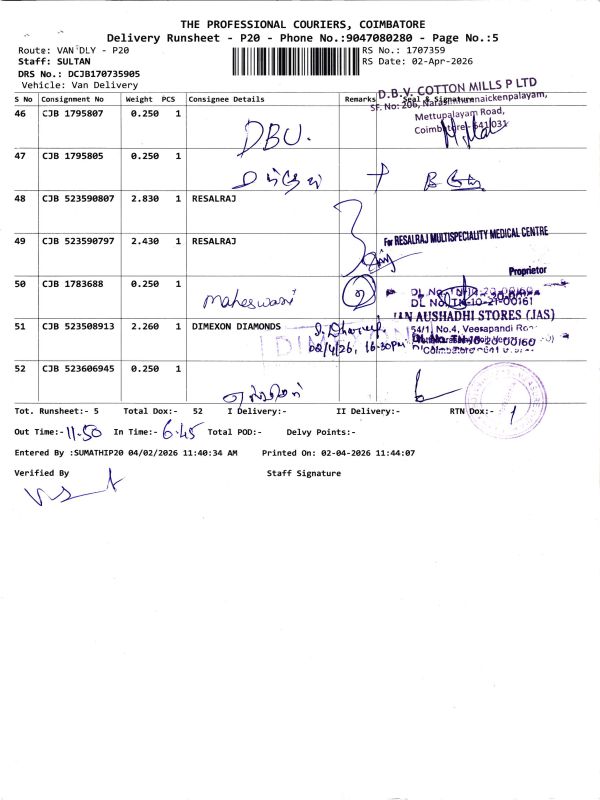 THE PROFESSIONAL COURIERS, COIMBATORE
Delivery Runsheet - P20 - Phone No.:9047080280 - Page No.:5
Route: VAN DLY - P20 RS No.: 1707359
Staff: SULTAN RS Date: 02-Apr-2026
DRS No.: DCJB170735905
Vehicle: Van Delivery
D.B.V. COTTON MILLS P LTD
SF. No: 206, Narasimhanaickenpalayam,
Mettupalayam Road,
Coimbatore - 641 031
S No Consignment No Weight PCS Consignee Details Remarks Seal & Signature
46 CJB 1795807 0.250 1
DBV.
47 CJB 1795805 0.250 1
48 CJB 523590807 2.830 1 RESALRAJ
49 CJB 523590797 2.430 1 RESALRAJ
For RESALRAJ MULTISPECIALITY MEDICAL CENTRE
Proprietor
50 CJB 1783688 0.250 1
Maheswari
DL No. TN-10-20-00160
DL No. TN-10-21-00161
JAN AUSHADHI STORES (JAS)
51 CJB 523508913 2.260 1 DIMEXON DIAMONDS
54/1, No.4, Veerapandi
02/4/26, 16:30pm
DIMEXON
52 CJB 523606945 0.250 1
Tot. Runsheet:- 5 Total Dox:- 52 I Delivery:- II Delivery:- RTN Dox:- 1
Out Time:- 11.50 In Time:- 6.45 Total POD:- Delvy Points:-
Entered By :SUMATHIP20 04/02/2026 11:40:34 AM Printed On: 02-04-2026 11:44:07
Verified By Staff Signature